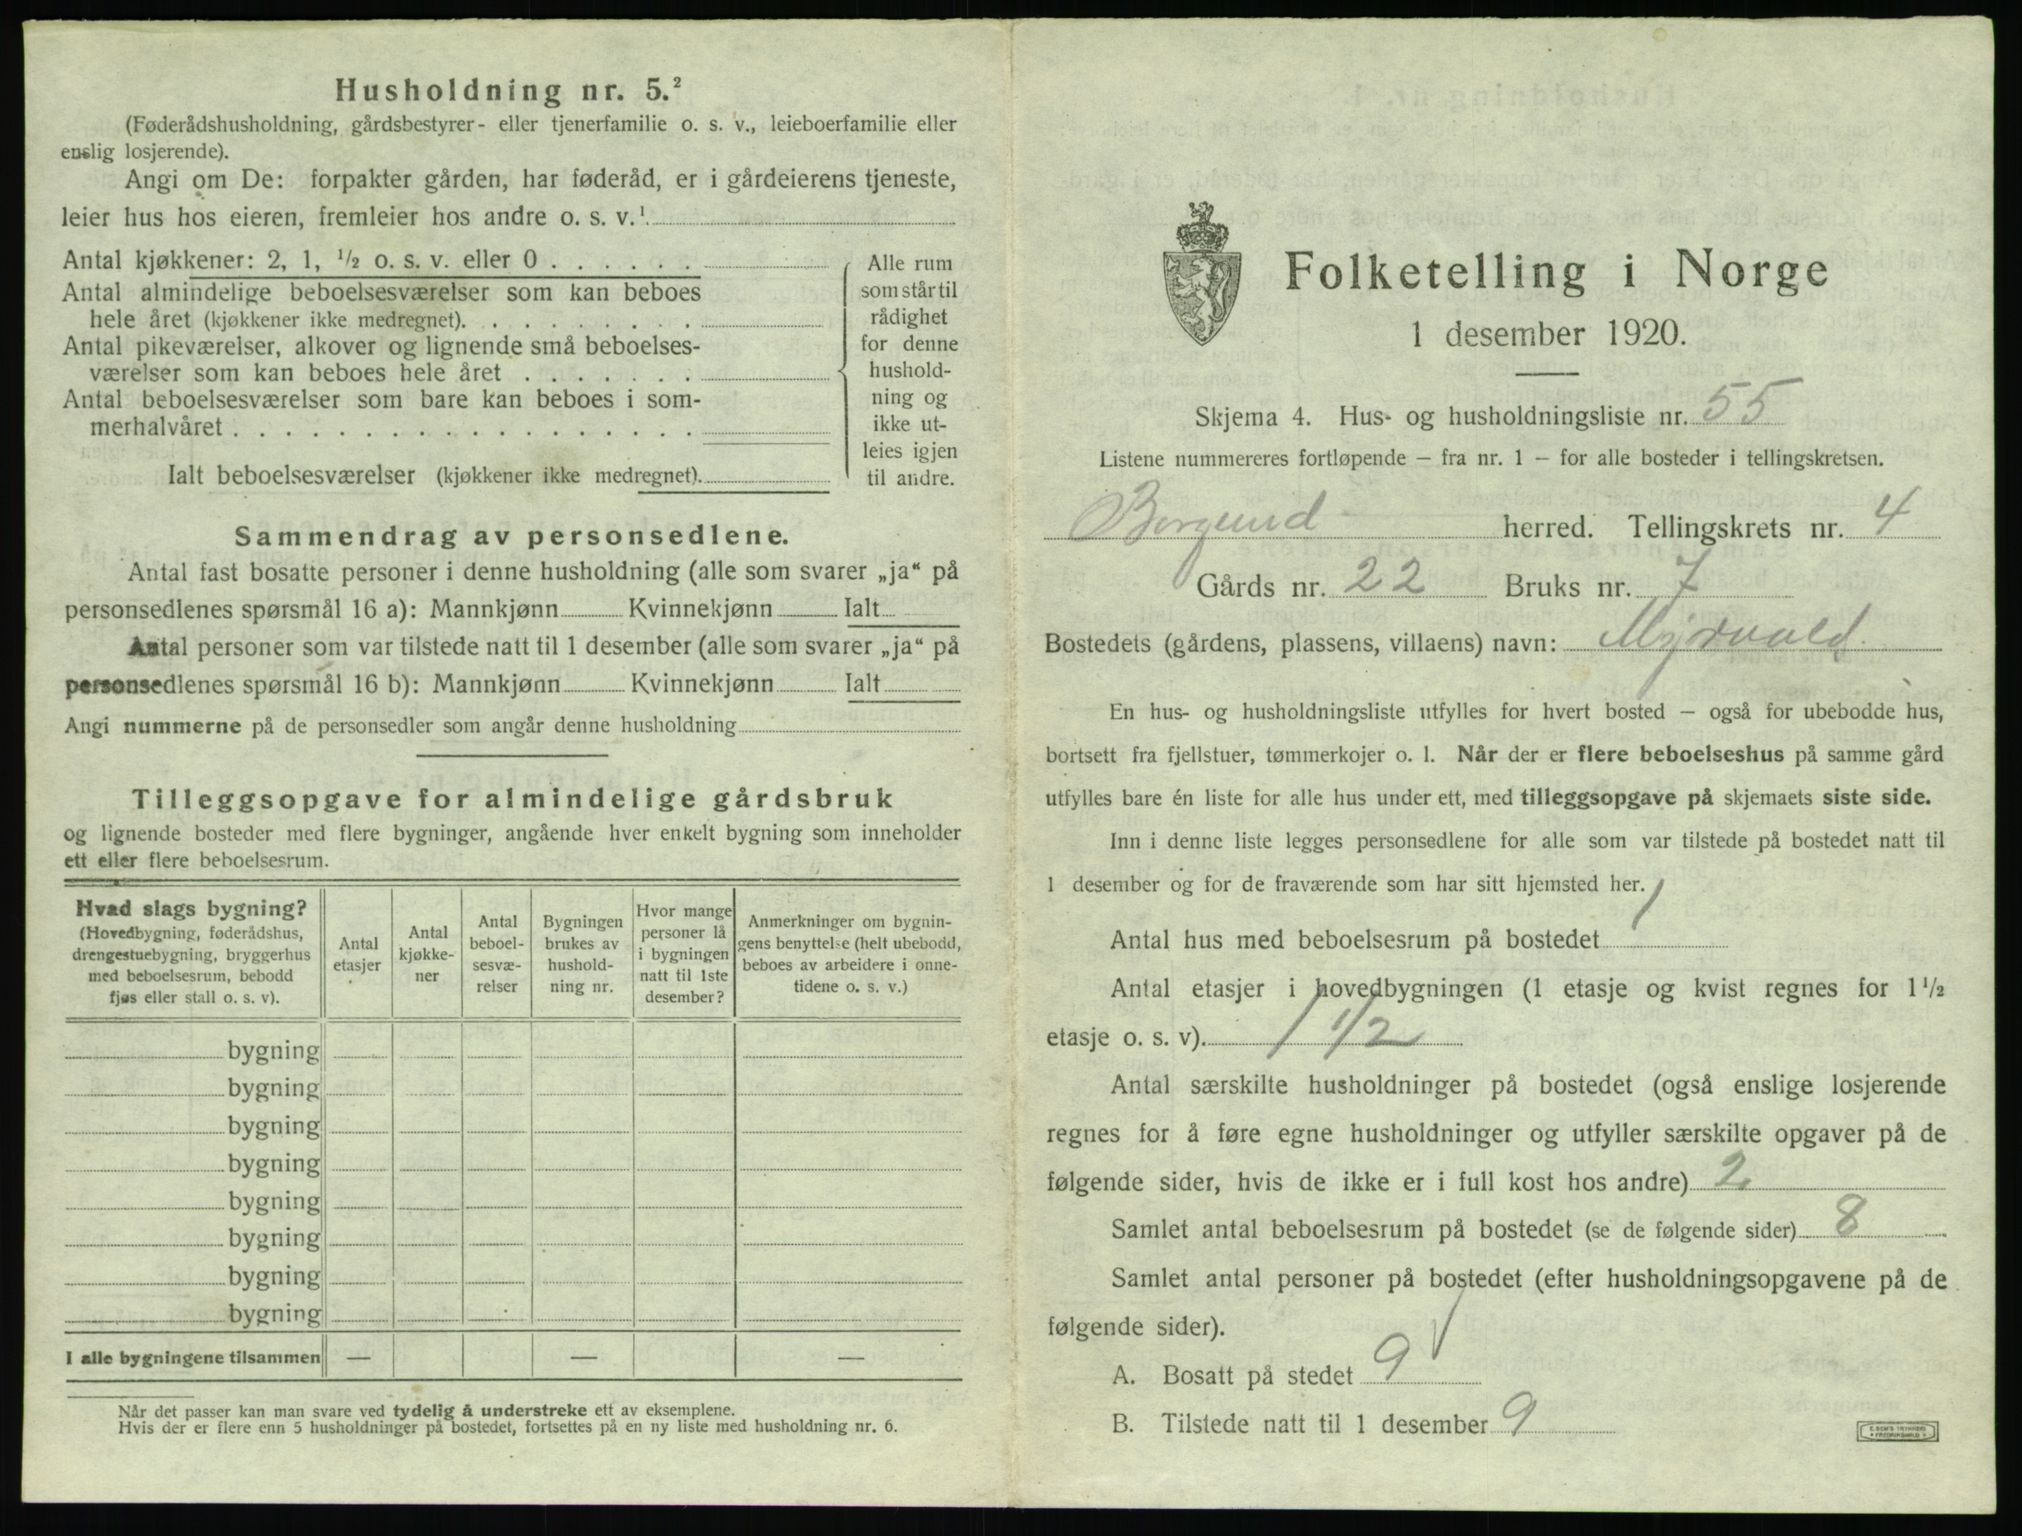 Husholdning nr. 5.²
(Føderådshusholdning, gårdsbestyrer- eller tjenerfamilie o. s. v., leieboerfamilie eller
enslig losjerende).
Angi om De: forpakter gården, har føderåd, er i gårdeierens tjeneste,
leier hus hos eieren, fremleier hos andre o. s. v.¹
Antal kjøkkener: 2, 1, ½ o. s. v. eller 0 . . . . . .
Antal almindelige beboelsesværelser som kan beboes
hele året (kjøkkener ikke medregnet). . . . . . . . .
Antal pikeværelser, alkover og lignende små beboelses-
værelser som kan beboes hele året . . . . . . .
Antal beboelsesværelser som bare kan beboes i som-
merhalvåret . . . . . . . . . . . . . . . . . .
Ialt beboelsesværelser (kjøkkener ikke medregnet).
Alle rum
som står til
rådighet
for denne
hushold-
ning og
ikke ut-
leies igjen
til andre.
Sammendrag av personsedlene.
Antal fast bosatte personer i denne husholdning (alle som svarer „ja“ på
personsedlenes spørsmål 16 a): Mannkjønn Kvinnekjønn Ialt
Antal personer som var tilstede natt til 1 desember (alle som svarer „ja“ på
personsedlenes spørsmål 16 b): Mannkjønn Kvinnekjønn Ialt
Angi nummerne på de personsedler som angår denne husholdning
Tilleggsopgave for almindelige gårdsbruk
og lignende bosteder med flere bygninger, angående hver enkelt bygning som inneholder
ett eller flere beboelsesrum.
Hvad slags bygning?
(Hovedbygning, føderådshus,
drengestuebygning, bryggerhus
med beboelsesrum, bebodd
fjøs eller stall o. s. v).
Antal
etasjer
Antal
kjøkke-
ner
Antal
beboel-
sesvæ-
relser
Bygningen
brukes av
hushold-
ning nr.
Hvor mange
personer lå
i bygningen
natt til 1ste
desember?
Anmerkninger om bygnin-
gens benyttelse (helt ubebodd,
beboes av arbeidere i onne-
tidene o. s. v.)
bygning
bygning
bygning
bygning
bygning
bygning
bygning
bygning
I alle bygningene tilsammen — — —
Når det passer kan man svare ved tydelig å understreke ett av eksemplene.
Hvis der er flere enn 5 husholdninger på bostedet, fortsettes på en ny liste med husholdning nr. 6.
Folketelling i Norge
1 desember 1920.
Skjema 4. Hus- og husholdningsliste nr. 55
Listene nummereres fortløpende — fra nr. 1 — for alle bosteder i tellingskretsen.
Borgund herred. Tellingskrets nr. 4
Gårds nr. 22 Bruks nr. 7
Bostedets (gårdens, plassens, villaens) navn: Myrvold.
En hus- og husholdningsliste utfylles for hvert bosted — også for ubebodde hus,
bortsett fra fjellstuer, tømmerkojer o. l. Når der er flere beboelseshus på samme gård
utfylles bare én liste for alle hus under ett, med tilleggsopgave på skjemaets siste side.
Inn i denne liste legges personsedlene for alle som var tilstede på bostedet natt til
1 desember og for de fraværende som har sitt hjemsted her.
Antal hus med beboelsesrum på bostedet 1
Antal etasjer i hovedbygningen (1 etasje og kvist regnes for 1½
etasje o. s. v). 1 1/2
Antal særskilte husholdninger på bostedet (også enslige losjerende
regnes for å føre egne husholdninger og utfyller særskilte opgaver på de
følgende sider, hvis de ikke er i full kost hos andre) 2
Samlet antal beboelsesrum på bostedet (se de følgende sider) 8
Samlet antal personer på bostedet (efter husholdningsopgavene på de
følgende sider).
A. Bosatt på stedet 9
B. Tilstede natt til 1 desember 9